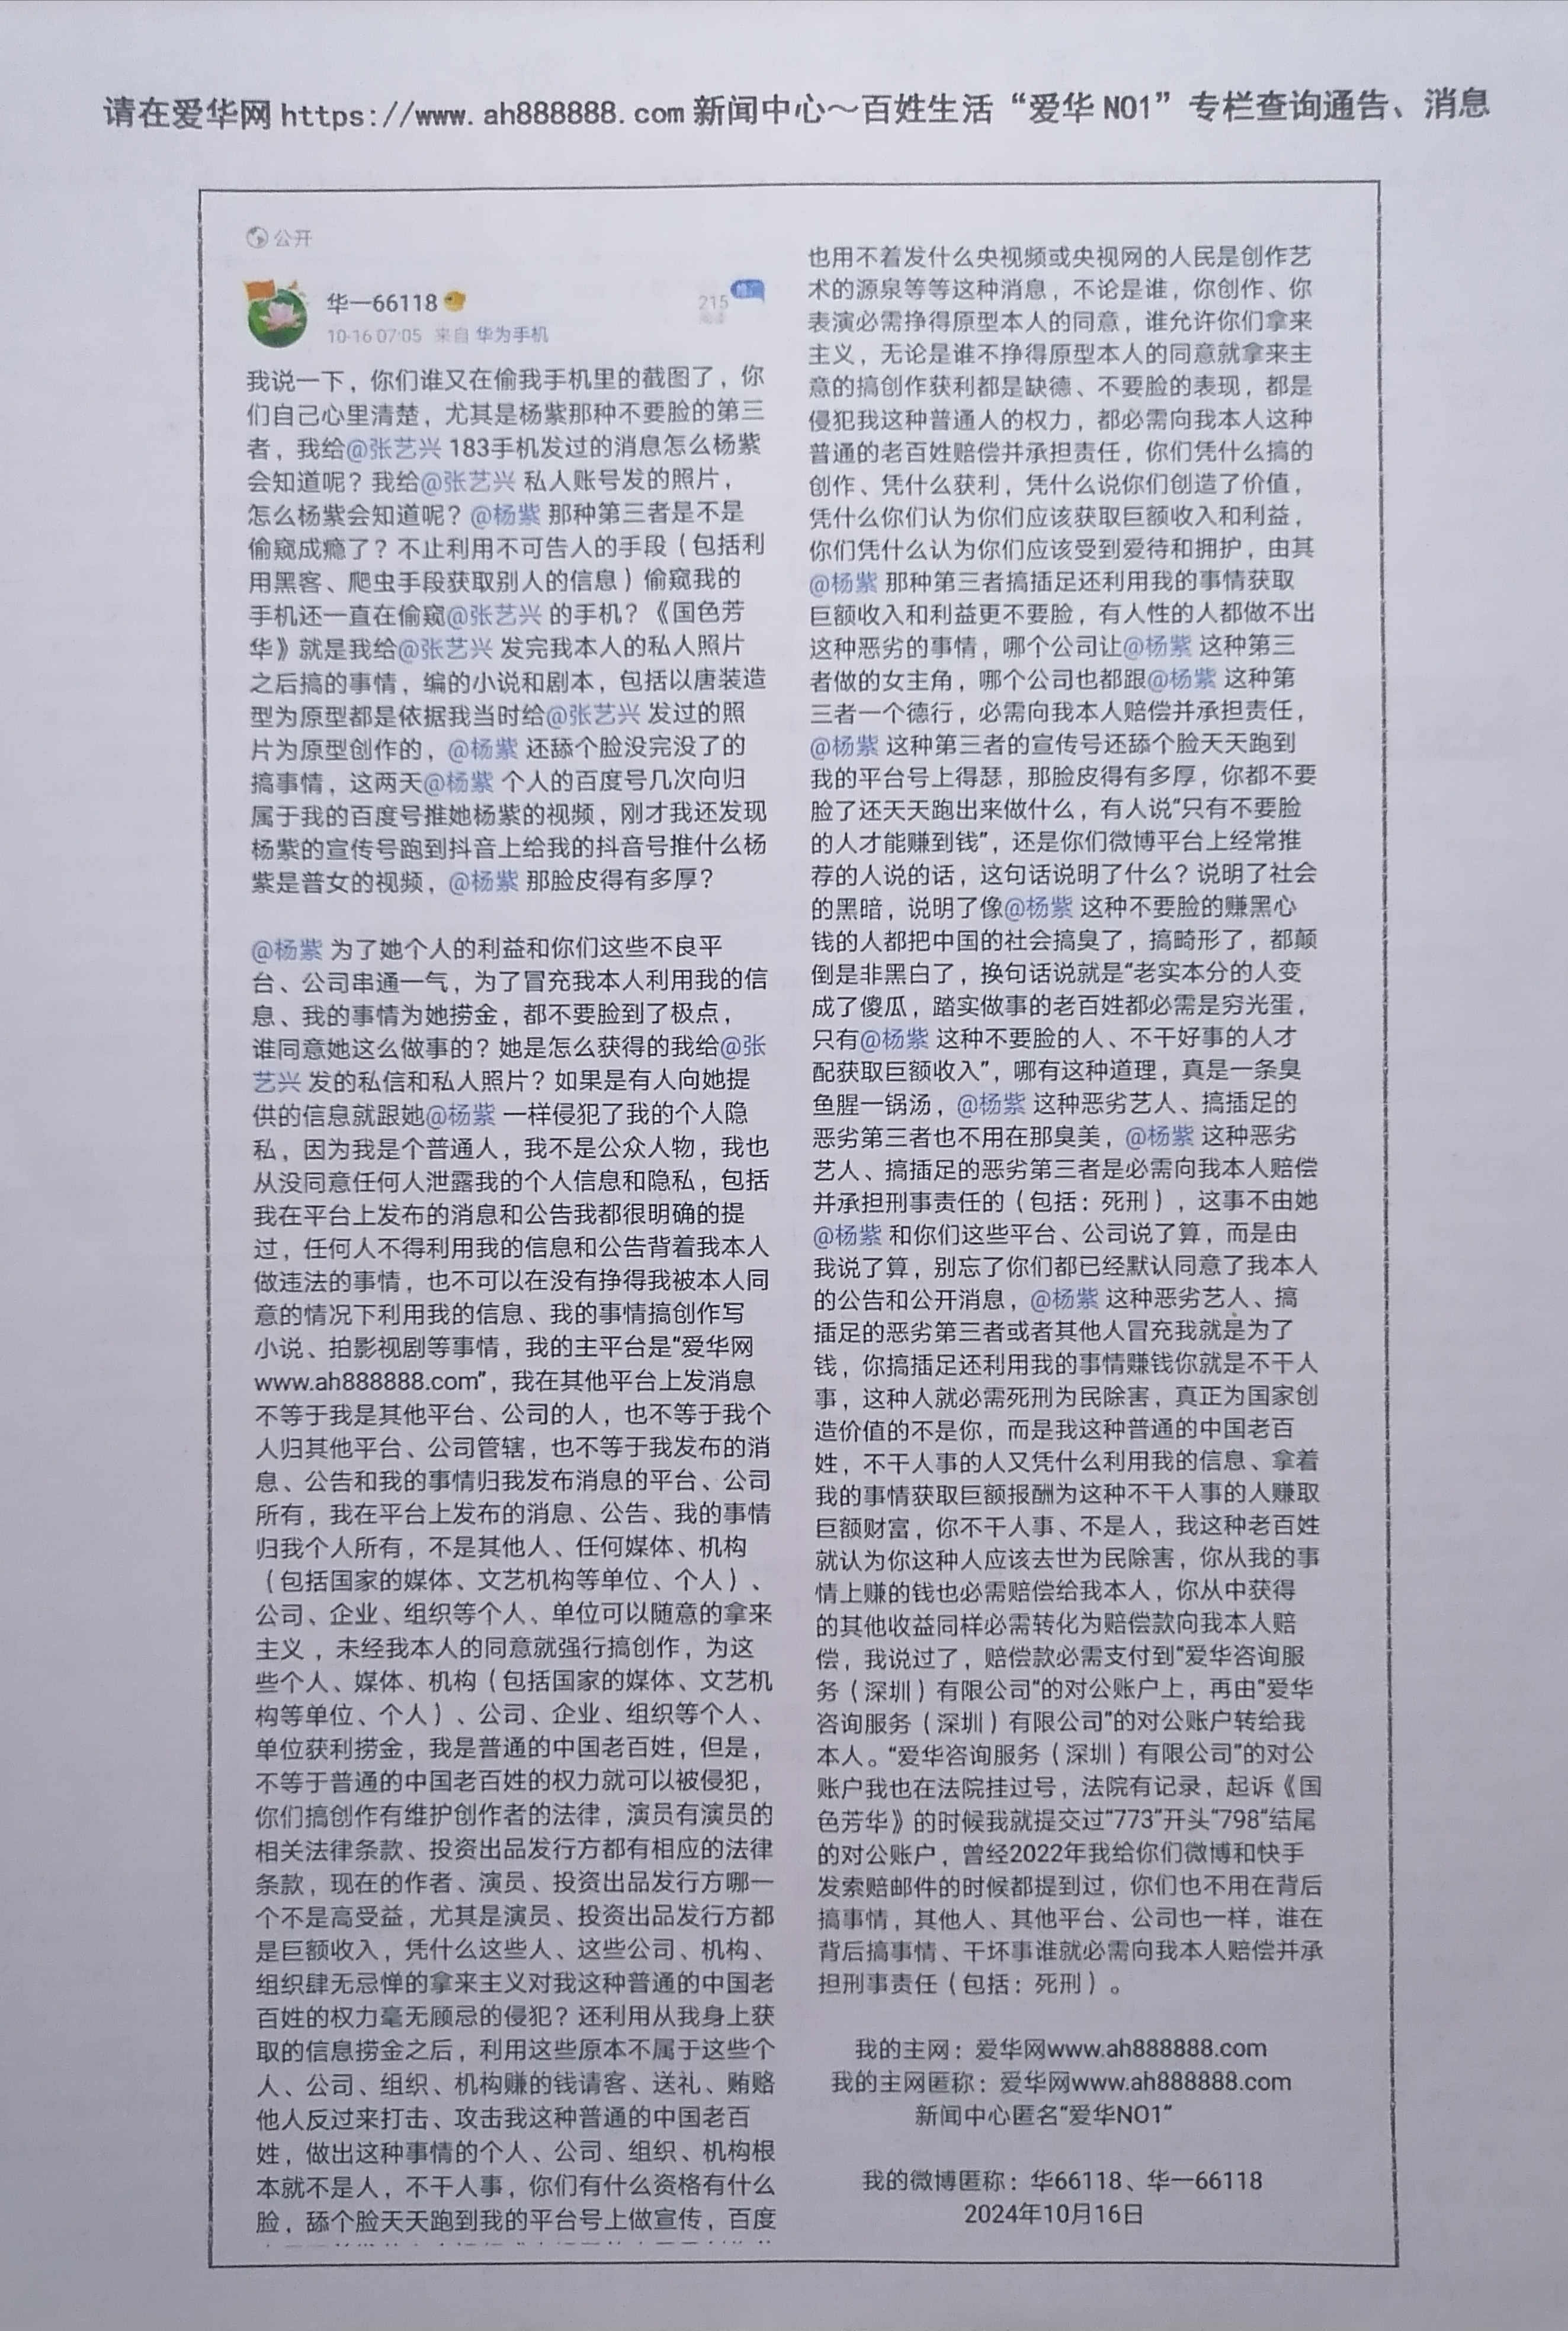 请在爱华网 https://www.ah888888.com 新闻中心～百姓生活“爱华 NO1”专栏查询通告、消息
公开
华一66118
215
10-16 07:05 来自 华为手机
我说一下，你们谁又在偷我手机里的截图了，你
们自己心里清楚，尤其是杨紫那种不要脸的第三
者，我给@张艺兴 183手机发过的消息怎么杨紫
会知道呢？我给@张艺兴 私人账号发的照片，
怎么杨紫会知道呢？@杨紫 那种第三者是不是
偷窥成瘾了？不止利用不可告人的手段（包括利
用黑客、爬虫手段获取别人的信息）偷窥我的
手机还一直在偷窥@张艺兴 的手机？《国色芳
华》就是我给@张艺兴 发完我本人的私人照片
之后搞的事情，编的小说和剧本，包括以唐装造
型为原型都是依据我当时给@张艺兴 发过的照
片为原型创作的，@杨紫 还舔个脸没完没了的
搞事情，这两天@杨紫 个人的百度号几次向归
属于我的百度号推她杨紫的视频，刚才我还发现
杨紫的宣传号跑到抖音上给我的抖音号推什么杨
紫是普女的视频，@杨紫 那脸皮得有多厚？
@杨紫 为了她个人的利益和你们这些不良平
台、公司串通一气，为了冒充我本人利用我的信
息、我的事情为她捞金，都不要脸到了极点，
谁同意她这么做事的？她是怎么获得的我给@张
艺兴 发的私信和私人照片？如果是有人向她提
供的信息就跟她@杨紫 一样侵犯了我的个人隐
私，因为我是个普通人，我不是公众人物，我也
从没同意任何人泄露我的个人信息和隐私，包括
我在平台上发布的消息和公告我都很明确的提
过，任何人不得利用我的信息和公告背着我本人
做违法的事情，也不可以在没有挣得我被本人同
意的情况下利用我的信息、我的事情搞创作写
小说、拍影视剧等事情，我的主平台是“爱华网
www.ah888888.com”，我在其他平台上发消息
不等于我是其他平台、公司的人，也不等于我个
人归其他平台、公司管辖，也不等于我发布的消
息、公告和我的事情归我发布消息的平台、公司
所有，我在平台上发布的消息、公告、我的事情
归我个人所有，不是其他人、任何媒体、机构
（包括国家的媒体、文艺机构等单位、个人）、
公司、企业、组织等个人、单位可以随意的拿来
主义，未经我本人的同意就强行搞创作，为这
些个人、媒体、机构（包括国家的媒体、文艺机
构等单位、个人）、公司、企业、组织等个人、
单位获利捞金，我是普通的中国老百姓，但是，
不等于普通的中国老百姓的权力就可以被侵犯，
你们搞创作有维护创作者的法律，演员有演员的
相关法律条款、投资出品发行方都有相应的法律
条款，现在的作者、演员、投资出品发行方哪一
个不是高受益，尤其是演员、投资出品发行方都
是巨额收入，凭什么这些人、这些公司、机构、
组织肆无忌惮的拿来主义对我这种普通的中国老
百姓的权力毫无顾忌的侵犯？还利用从我身上获
取的信息捞金之后，利用这些原本不属于这些个
人、公司、组织、机构赚的钱请客、送礼、贿赂
他人反过来打击、攻击我这种普通的中国老百
姓，做出这种事情的个人、公司、组织、机构根
本就不是人，不干人事，你们有什么资格有什么
脸，舔个脸天天跑到我的平台号上做宣传，百度
也用不着发什么央视频或央视网的人民是创作艺
术的源泉等等这种消息，不论是谁，你创作、你
表演必需挣得原型本人的同意，谁允许你们拿来
主义，无论是谁不挣得原型本人的同意就拿来主
意的搞创作获利都是缺德、不要脸的表现，都是
侵犯我这种普通人的权力，都必需向我本人这种
普通的老百姓赔偿并承担责任，你们凭什么搞的
创作、凭什么获利，凭什么说你们创造了价值，
凭什么你们认为你们应该获取巨额收入和利益，
你们凭什么认为你们应该受到爱待和拥护，由其
@杨紫 那种第三者搞插足还利用我的事情获取
巨额收入和利益更不要脸，有人性的人都做不出
这种恶劣的事情，哪个公司让@杨紫 这种第三
者做的女主角，哪个公司也都跟@杨紫 这种第
三者一个德行，必需向我本人赔偿并承担责任，
@杨紫 这种第三者的宣传号还舔个脸天天跑到
我的平台号上得瑟，那脸皮得有多厚，你都不要
脸了还天天跑出来做什么，有人说“只有不要脸
的人才能赚到钱”，还是你们微博平台上经常推
荐的人说的话，这句话说明了什么？说明了社会
的黑暗，说明了像@杨紫 这种不要脸的赚黑心
钱的人都把中国的社会搞臭了，搞畸形了，都颠
倒是非黑白了，换句话说就是“老实本分的人变
成了傻瓜，踏实做事的老百姓都必需是穷光蛋，
只有@杨紫 这种不要脸的人、不干好事的人才
配获取巨额收入”，哪有这种道理，真是一条臭
鱼腥一锅汤，@杨紫 这种恶劣艺人、搞插足的
恶劣第三者也不用在那臭美，@杨紫 这种恶劣
艺人、搞插足的恶劣第三者是必需向我本人赔偿
并承担刑事责任的（包括：死刑），这事不由她
@杨紫 和你们这些平台、公司说了算，而是由
我说了算，别忘了你们都已经默认同意了我本人
的公告和公开消息，@杨紫 这种恶劣艺人、搞
插足的恶劣第三者或者其他人冒充我就是为了
钱，你搞插足还利用我的事情赚钱你就是不干人
事，这种人就必需死刑为民除害，真正为国家创
造价值的不是你，而是我这种普通的中国老百
姓，不干人事的人又凭什么利用我的信息、拿着
我的事情获取巨额报酬为这种不干人事的人赚取
巨额财富，你不干人事、不是人，我这种老百姓
就认为你这种人应该去世为民除害，你从我的事
情上赚的钱也必需赔偿给我本人，你从中获得
的其他收益同样必需转化为赔偿款向我本人赔
偿，我说过了，赔偿款必需支付到“爱华咨询服
务（深圳）有限公司”的对公账户上，再由“爱华
咨询服务（深圳）有限公司”的对公账户转给我
本人。“爱华咨询服务（深圳）有限公司”的对公
账户我也在法院挂过号，法院有记录，起诉《国
色芳华》的时候我就提交过“773”开头“798”结尾
的对公账户，曾经2022年我给你们微博和快手
发索赔邮件的时候都提到过，你们也不用在背后
搞事情，其他人、其他平台、公司也一样，谁在
背后搞事情、干坏事谁就必需向我本人赔偿并承
担刑事责任（包括：死刑）。
我的主网：爱华网www.ah888888.com
我的主网匿称：爱华网www.ah888888.com
新闻中心匿名“爱华NO1”
我的微博匿称：华66118、华一66118
2024年10月16日